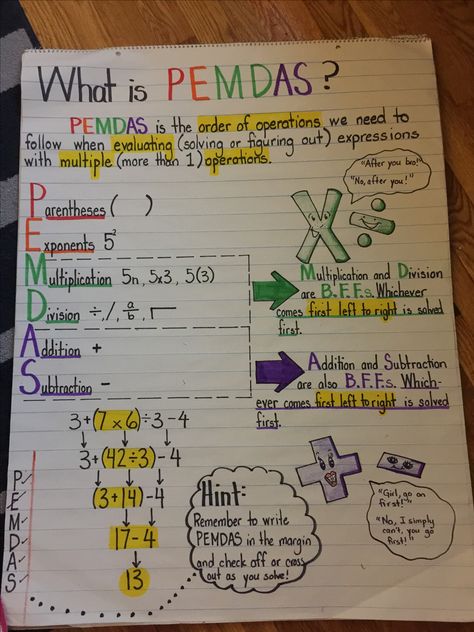 What is PEMDAS?
PEMDAS is the order of operations we need to
follow when evaluating (solving or figuring out) expressions
with multiple (more than 1) operations.
"After you bro!"
"No, after you!"
Parentheses ( )
Exponents 5²
Multiplication 5n, 5x3, 5(3)
Division ÷, /, a/b, ┌─
Multiplication and Division
are B.F.F.s. Whichever
comes first left to right is solved
first.
Addition +
Subtraction -
Addition and Subtraction
are also B.F.F.s. Which-
ever comes first left to right is solved
first.
3+(7×6)÷3-4
3+(42÷3)-4
(3+14)-4
17-4
13
P✓
E✓
M✓
D✓
A✓
S✓
Hint:
Remember to write
PEMDAS in the margin
and check off or cross
out as you solve!
"Girl, go on
first!"
"No, I simply
can't, you go
first!"